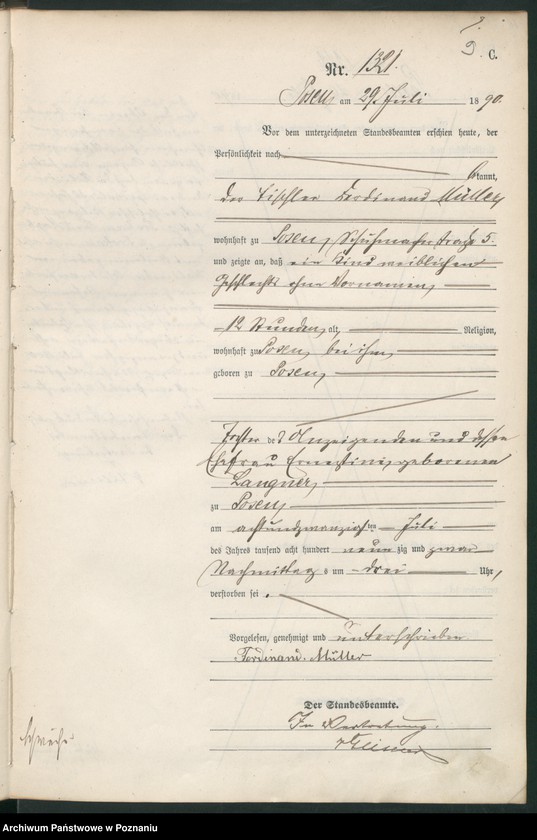 C.
Nr. 1321.
Posen, am 29. Juli 1890.
Vor dem unterzeichneten Standesbeamten erschien heute, der
Persönlichkeit nach
bekannt,
der Tischler Ferdinand Müller,
wohnhaft zu Posen, Schuhmacherstraße 5.
und zeigte an, daß ein Kind weiblichen
Geschlechts ohne Vornamen,
12 Stunden alt, Religion,
wohnhaft zu Posen, bei ihm,
geboren zu Posen,
Tochter des Anzeigenden und dessen
Ehefrau Ernestine, geborenen
Langner,
zu Posen,
am achtundzwanzigsten Juli
des Jahres tausend acht hundert neunzig und zwar
Nachmittags um drei Uhr,
verstorben sei.
Vorgelesen, genehmigt und unterschrieben
Ferdinand Müller
Der Standesbeamte.
In Vertretung.
Schwäche
Archiwum Państwowe w Poznaniu